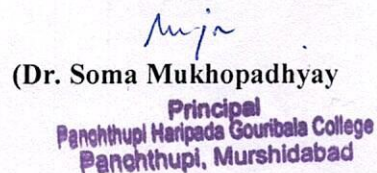 (Dr. Soma Mukhopadhyay
Principal
Panchthupi Haripada Gouribala College
Panchthupi, Murshidabad